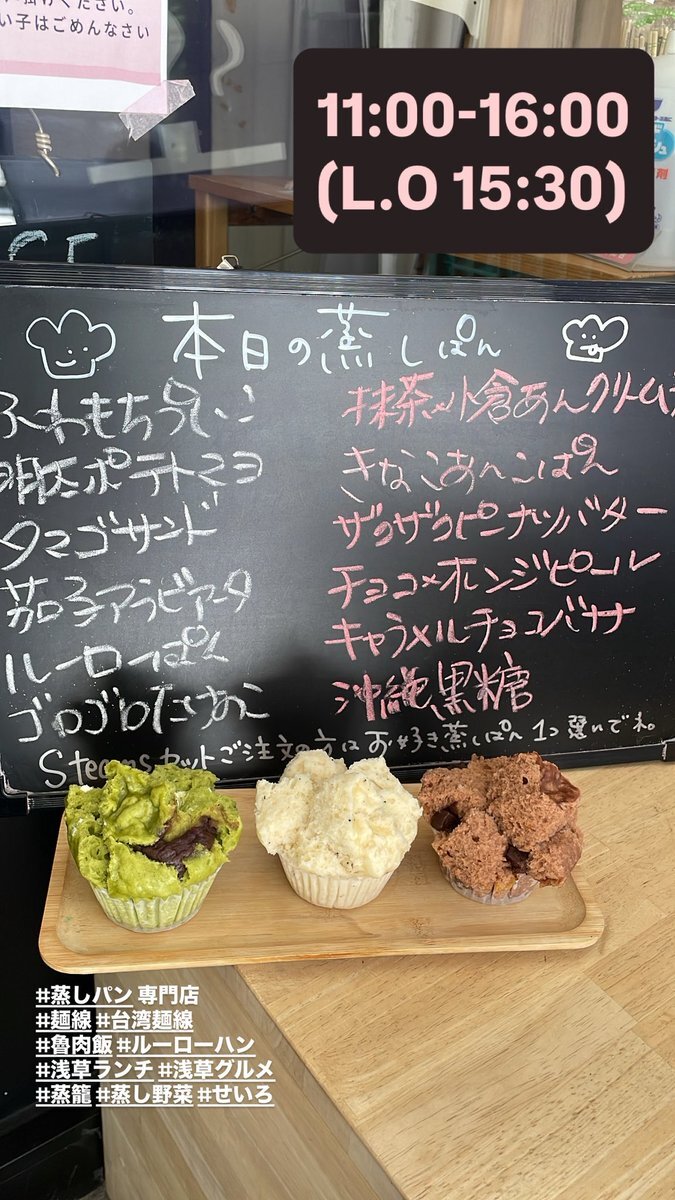 掛けください。
い子はごめんなさい
11:00-16:00
(L.O 15:30)
本日の蒸しぱん
ふわもち
明太ポテトマヨ
タマゴサンド
茄子アラビアータ
ルーローぱん
ゴロゴロたけのこ
抹茶×小倉あんクリーム
きなこあんこぱん
ザクザクピーナツバター
チョコ×オレンジピール
キャラメルチョコバナナ
沖縄黒糖
Steamsセットご注文の方はお好き蒸しぱん1コ選んでね。
#蒸しパン 専門店
#麺線 #台湾麺線
#魯肉飯 #ルーローハン
#浅草ランチ #浅草グルメ
#蒸籠 #蒸し野菜 #せいろ